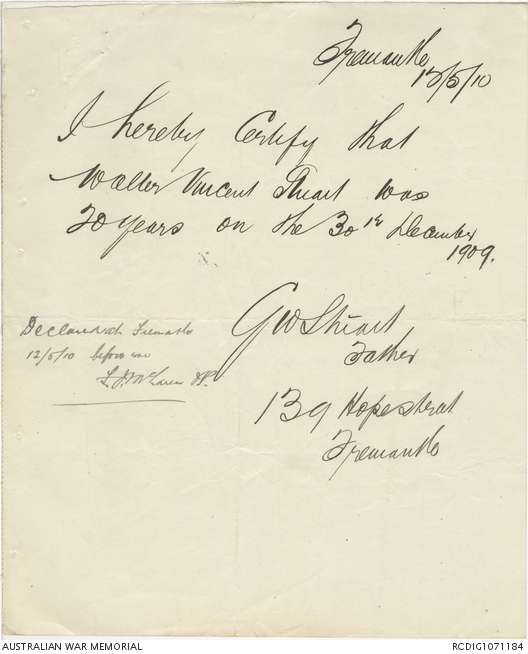 Fremantle
12/5/10
I hereby Certify that
Walter Vincent Stuart was
20 years on the 30th December
1909.
GW Stuart
Father
139 Hope street
Fremantle
Declared at Fremantle
12/5/10 before me
McLaren JP.
AUSTRALIAN WAR MEMORIAL
RCDIG1071184